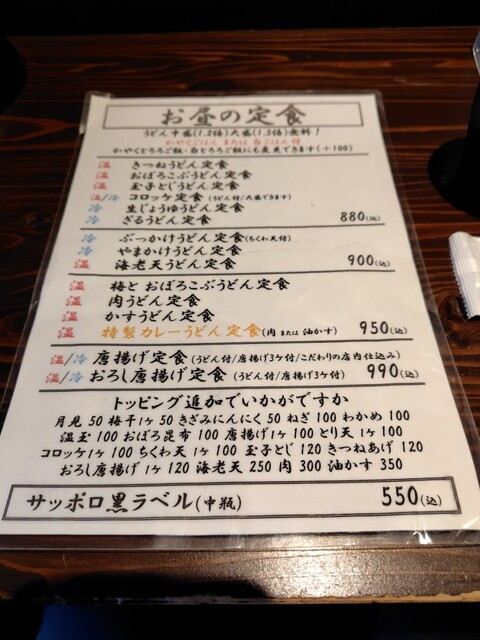 お昼の定食
うどん中盛(1.2倍)大盛(1.5倍)無料！
かやくごはん または 白ごはん付
かやくとろろご飯・白とろろご飯にも変更できます(+100)
温 きつねうどん定食
温 おぼろこぶうどん定食
温 玉子とじうどん定食
温/冷 コロッケ定食 (うどん付/大盛できます)
冷 生じょうゆうどん定食
冷 ざるうどん定食 880(込)
冷 ぶっかけうどん定食(ちくわ天付)
冷 やまかけうどん定食
温 海老天うどん定食 900(込)
温 梅と おぼろこぶうどん定食
温 肉うどん定食
温 かすうどん定食
温 特製カレーうどん定食(肉 または 油かす) 950(込)
温/冷 唐揚げ定食 (うどん付/唐揚げ3ケ付/こだわりの店内仕込み)
温/冷 おろし唐揚げ定食 (うどん付/唐揚げ3ケ付) 990(込)
トッピング追加でいかがですか
月見 50 梅干1ヶ 50 きざみにんにく 50 ねぎ 100 わかめ 100
温玉 100 おぼろ昆布 100 唐揚げ1ヶ 100 とり天 1ヶ 100
コロッケ1ヶ 100 ちくわ天 1ヶ 100 玉子とじ 120 きつねあげ 120
おろし唐揚げ 1ヶ 120 海老天 250 肉 300 油かす 350
サッポロ黒ラベル(中瓶) 550(込)